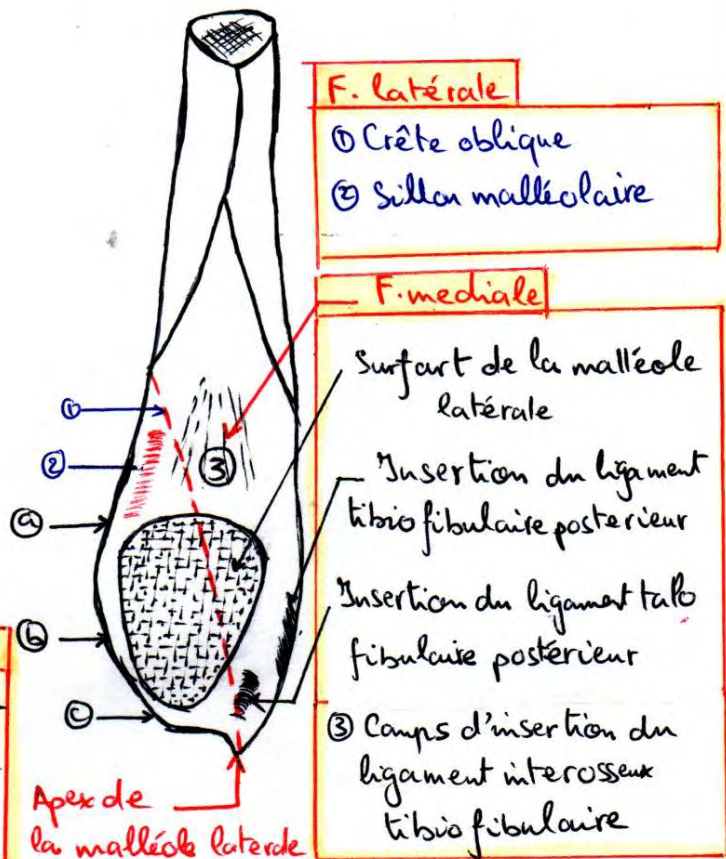 F. latérale
① Crête oblique
② Sillon malléolaire
F. mediale
Surfart de la malléole
latérale
Insertion du ligament
tibio fibulaire posterieur
Insertion du ligament talo
fibulaire postérieur
③ Camps d'insertion du
ligament interosseux
tibio fibulaire
①
②
③
ⓐ
ⓑ
ⓒ
Apex de
la malléole laterale